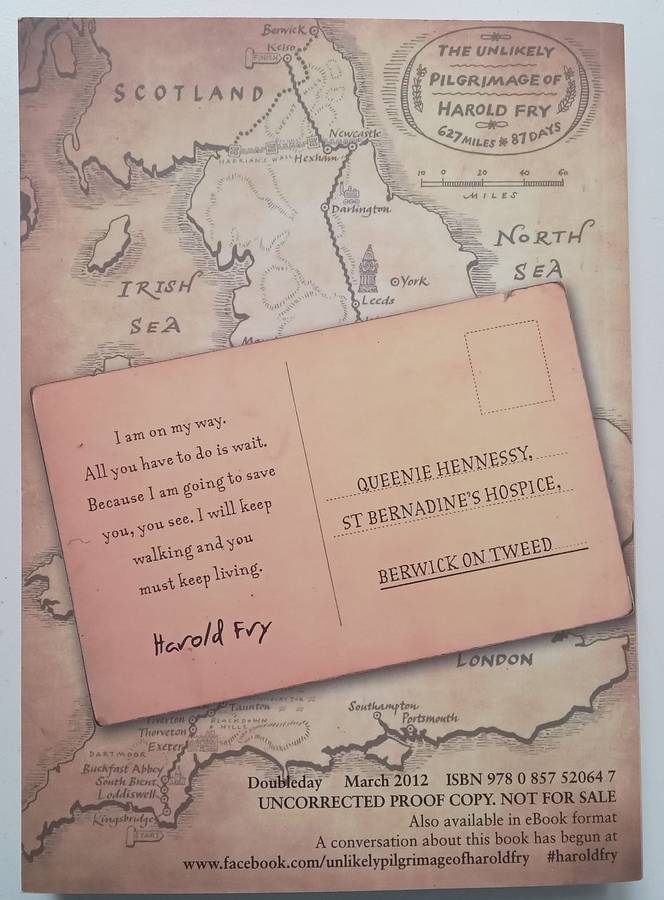 Berwick
Kelso
FINISH
SCOTLAND
THE UNLIKELY
PILGRIMAGE OF
HAROLD FRY
627 MILES * 87 DAYS
Newcastle
HADRIAN'S WALL
Hexham
10 0 20 40 60
MILES
Darlington
NORTH
SEA
York
Leeds
IRISH
SEA
I am on my way.
All you have to do is wait.
Because I am going to save
you, you see. I will keep
walking and you
must keep living.
Harold Fry
QUEENIE HENNESSY,
ST BERNADINE'S HOSPICE,
BERWICK ON TWEED
LONDON
Taunton
Tiverton
BLACKDOWN
HILLS
Thorverton
Exeter
DARTMOOR
Buckfast Abbey
South Brent
Loddiswell
Kingsbridge
START
Southampton
Portsmouth
Doubleday March 2012 ISBN 978 0 857 52064 7
UNCORRECTED PROOF COPY. NOT FOR SALE
Also available in eBook format
A conversation about this book has begun at
www.facebook.com/unlikelypilgrimageofharoldfry #haroldfry